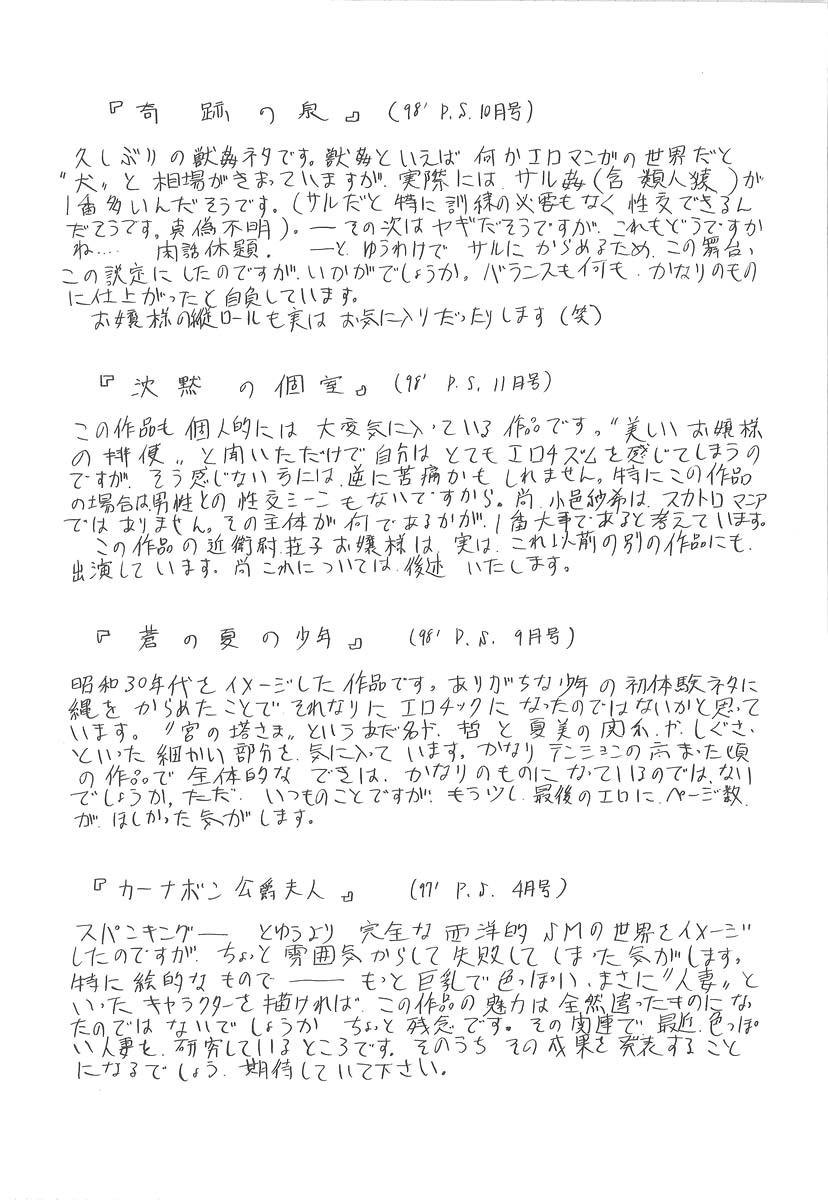 『奇跡の泉』（98' P.S.10月号）
久しぶりの獣姦ネタです。獣姦といえば何かエロマンガの世界だと
〝犬〟と相場がきまっていますが、実際には、サル姦（含 類人猿）が
1番多いんだそうです。（サルだと特に訓練の必要もなく性交できるん
だそうです。真偽不明）。―その次はヤギだそうですが、これもどうですか
ね…… 閑話休題。 ―と、ゆうわけでサルにからめるため、この舞台、
この設定にしたのですが、いかがでしょうか。バランスも何も、かなりのもの
に仕上がったと自負しています。
お嬢様の縦ロールも実はお気に入りだったりします（笑）
『沈黙の個室』（98' P.S.11月号）
この作品も個人的には大変気に入っている作品です。〝美しいお嬢様
の排便〟と聞いただけで自分はとてもエロチズムを感じてしまうの
ですが、そう感じない方には、逆に苦痛かもしれません。特にこの作品
の場合は、男性との性交シーンもないですから。尚、小邑紗希は、スカトロマニア
ではありません。その主体が何であるかが、1番大事であると考えています。
この作品の近衛尉 荘子お嬢様は、実は、これ以前の別の作品にも、
出演しています。尚これについては、後述いたします。
『蒼の夏の少年』（98' P.S. 9月号）
昭和30年代をイメージした作品です。ありがちな少年の初体験ネタに
縄をからめたことでそれなりにエロチックになったのではないかと思って
います。〝宮の塔さま〟というあだ名や、哲と夏美の関係や、しぐさ、
といった細かい部分を、気に入っています。かなりテンションの高まった頃
の作品で全体的なできは、かなりのものになっているのでは、ない
でしょうか。ただ、いつものことですが、もう少し、最後のエロに、ページ数
が、ほしかった気がします。
『カーナボン公爵夫人』（97' P.S. 4月号）
スパンキング― とゆうより完全な西洋的SMの世界をイメージ
したのですが、ちょっと雰囲気からして失敗してしまった気がします。
特に絵的なもので―もっと巨乳で色っぽい、まさに〝人妻〟と
いったキャラクターを描ければ、この作品の魅力は全然違ったものになっ
たのではないでしょうか ちょっと残念です。その関連で、最近、色っぽ
い人妻を、研究しているところです。そのうちその成果を発表すること
になるでしょう、期待していて下さい。